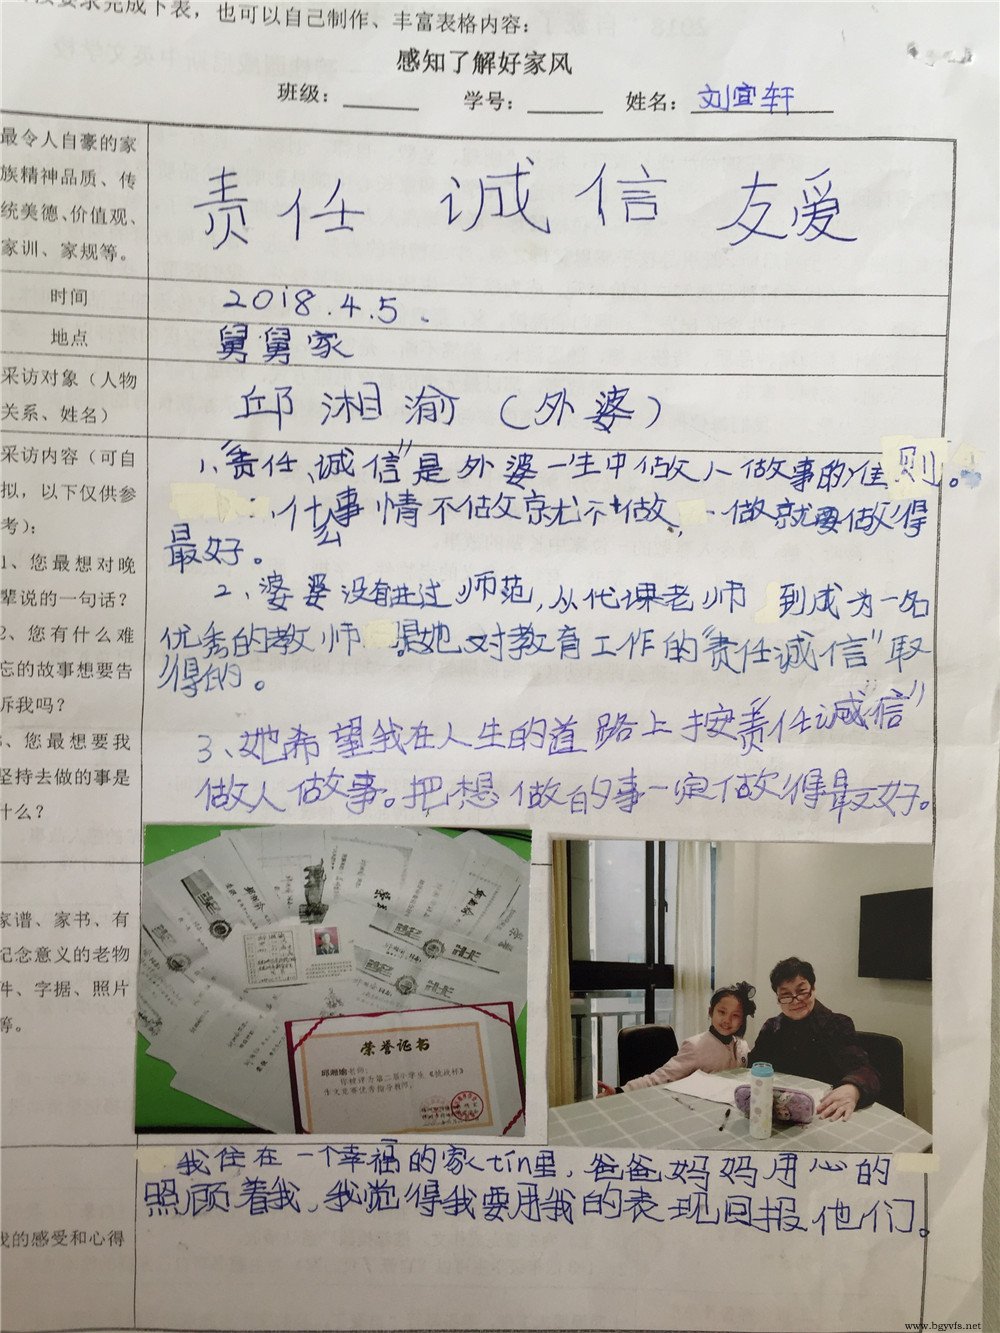 按要求完成下表，也可以自己制作、丰富表格内容：
感知了解好家风
班级：　学号：　姓名：刘宜轩
最令人自豪的家
族精神品质、传
统美德、价值观、
家训、家规等。
责任 诚信 友爱
时间
2018.4.5.
地点
舅舅家
采访对象（人物
关系、姓名）
邱湘渝（外婆）
采访内容（可自
拟，以下仅供参
考）：
1、您最想对晚
辈说的一句话？
2、您有什么难
忘的故事想要告
诉我吗？
、您最想要我
坚持去做的事是
什么？
1、“责任、诚信”是外婆一生中做人做事的准则。
什么事情不做就不做，一做就要做得
最好。
2、婆婆没有进过师范，从代课老师到成为一名
优秀的教师 是她对教育工作的“责任诚信”取
得的。
3、她希望我在人生的道路上按“责任诚信”
做人做事。把想做的事一定做得最好。
家谱、家书、有
纪念意义的老物
件、字据、照片
等。
荣誉证书
邱湘渝老师：
你被评为第二届小学生
作文竞赛优秀指导教师。
我的感受和心得
我住在一个幸福的家tín里，爸爸妈妈用心的
照顾着我，我觉得我要用我的表现回报他们。
www.bgyvfs.net